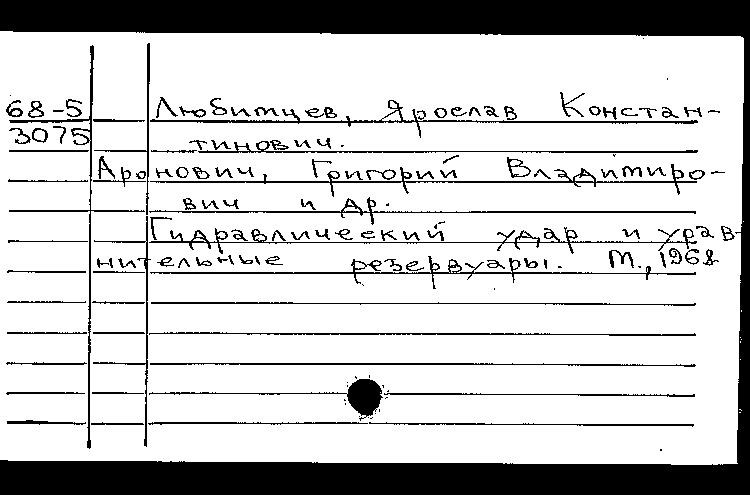 68-5 Любимцев, Ярослав Констан-
3075 тинович.
Аронович, Григорий Владимиро-
вич и др.
Гидравлический удар и урав-
нительные резервуары. М., 1968